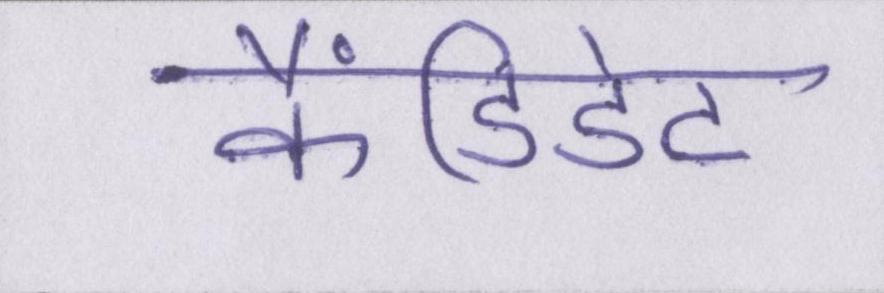 कैंडिडेट